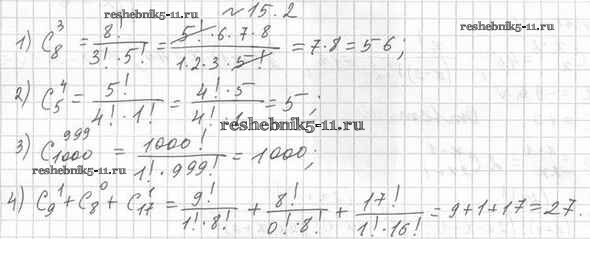 reshebnik5-11.ru № 15.2 reshebnik5-11.ru
1) C_8^3 = 8!/(3!·5!) = (5!·6·7·8)/(1·2·3·5!) = 7·8 = 56;
2) C_5^4 = 5!/(4!·1!) = (4!·5)/(4!·1) = 5;
reshebnik5-11.ru
3) C_1000^999 = 1000!/(1!·999!) = 1000;
reshebnik5-11.ru
4) C_9^1 + C_8^0 + C_17^1 = 9!/(1!·8!) + 8!/(0!·8!) + 17!/(1!·16!) = 9+1+17 = 27.